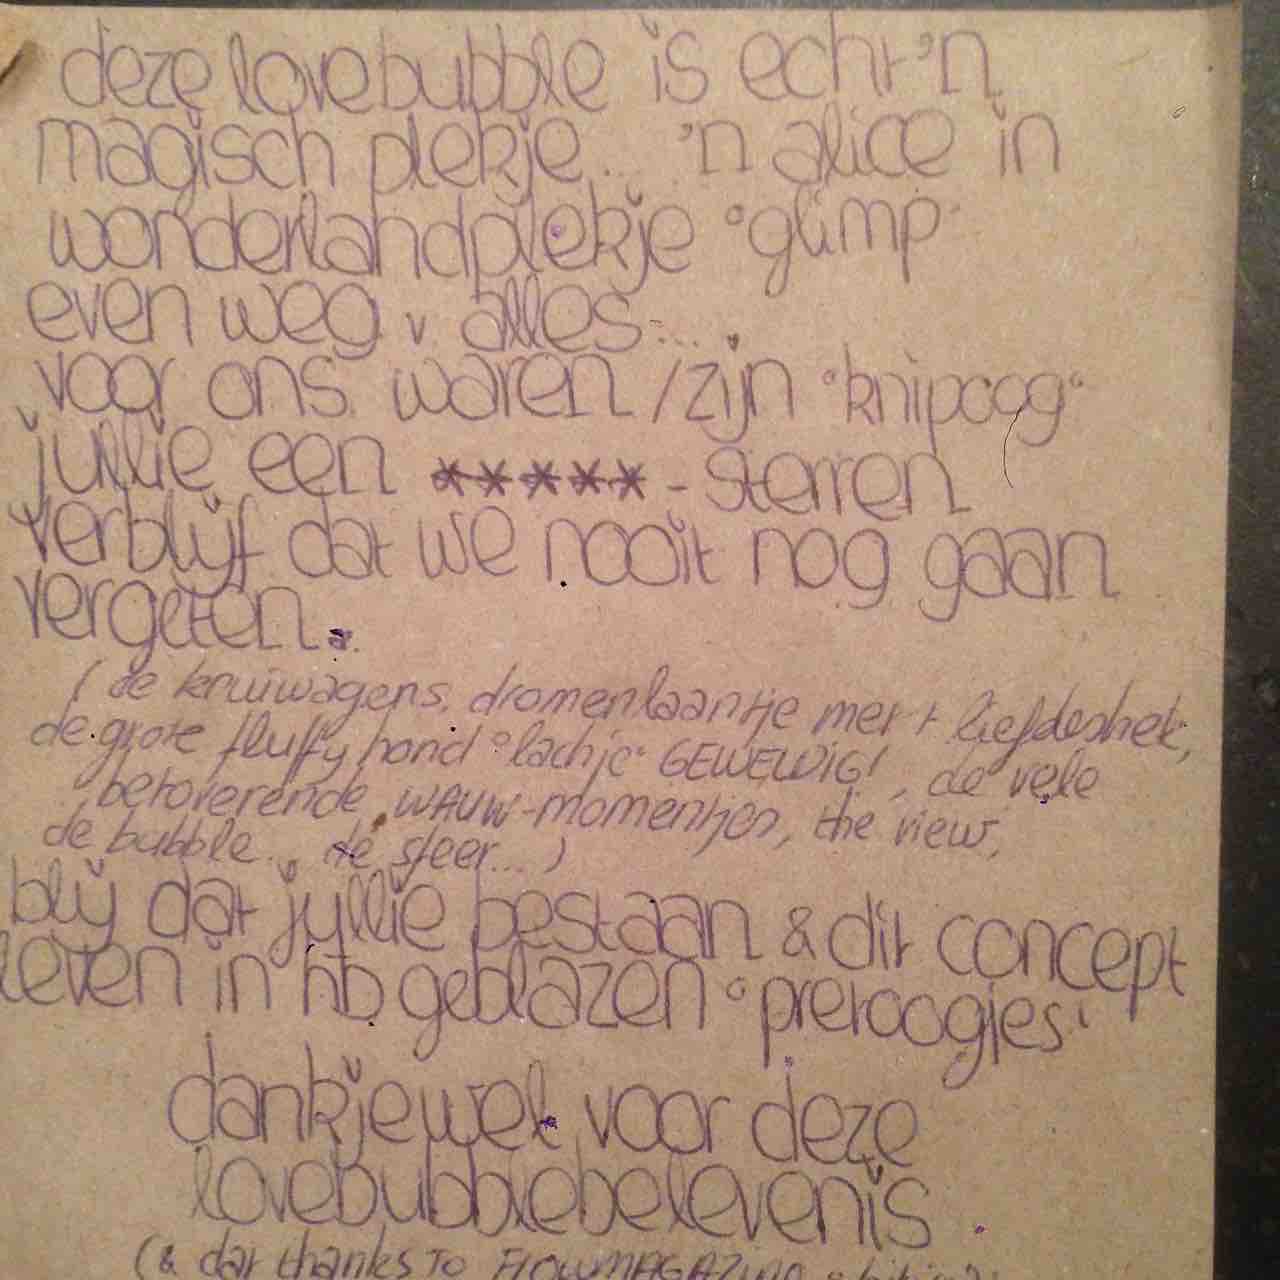 deze lovebubble is echt 'n
magisch plekje... 'n alice in
wonderlandplekje °glimp°
even weg v alles...
voor ons waren /zijn °knipoog°
jullie een ***** - sterren
verblijf dat we nooit nog gaan
vergeten.
(de kruiwagens, dromenlaantje met liefdeshek,
de grote fluffy hond °lachje° GEWELDIG!, de vele
betoverende WAUW-momentjes, the view,
de bubble... de sfeer...)
blij dat jullie bestaan & dit concept
leven in hb geblazen °pretoogjes°
dankjewel voor deze
lovebubblebelevenis
(& dat thanks to FLOWMAGAZINE